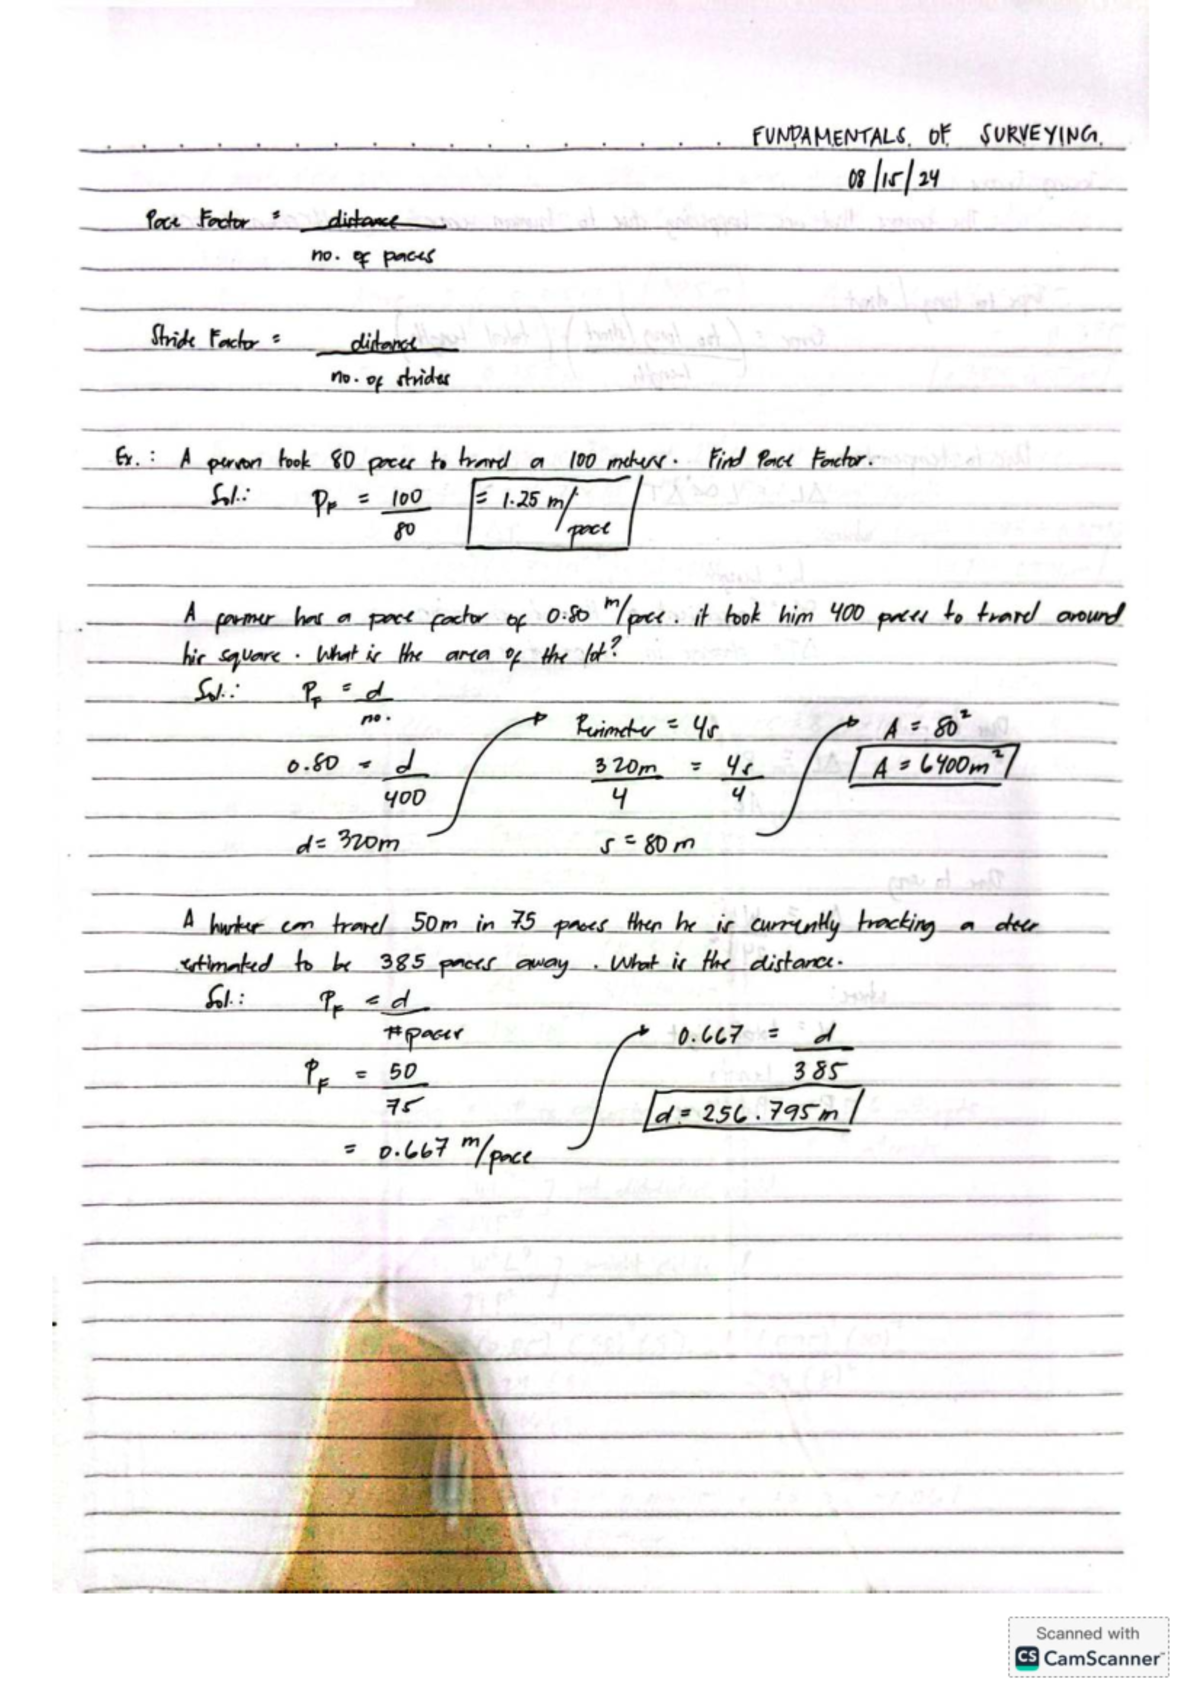 FUNDAMENTALS OF SURVEYING.
08/15/24
Pace Factor = distance
no. of paces
Stride Factor = distance
no. of strides
Ex.: A person took 80 paces to travel a 100 meters. Find Pace Factor.
Sol.: PF = 100 = 1.25 m/pace
80
A farmer has a pace factor of 0.80 m/pace. it took him 400 paces to travel around
his square. What is the area of the lot?
Sol.: PF = d
no.
Perimeter = 4s
A = 80²
0.80 = d
400
320m = 4s
4 4
A = 6400m²
d = 320m
s = 80 m
A hunter can travel 50m in 75 paces then he is currently tracking a deer
estimated to be 385 paces away. What is the distance.
Sol.: PF = d
#paces
0.667 = d
385
PF = 50
75
d = 256.795m
= 0.667 m/pace
Scanned with
CS CamScanner